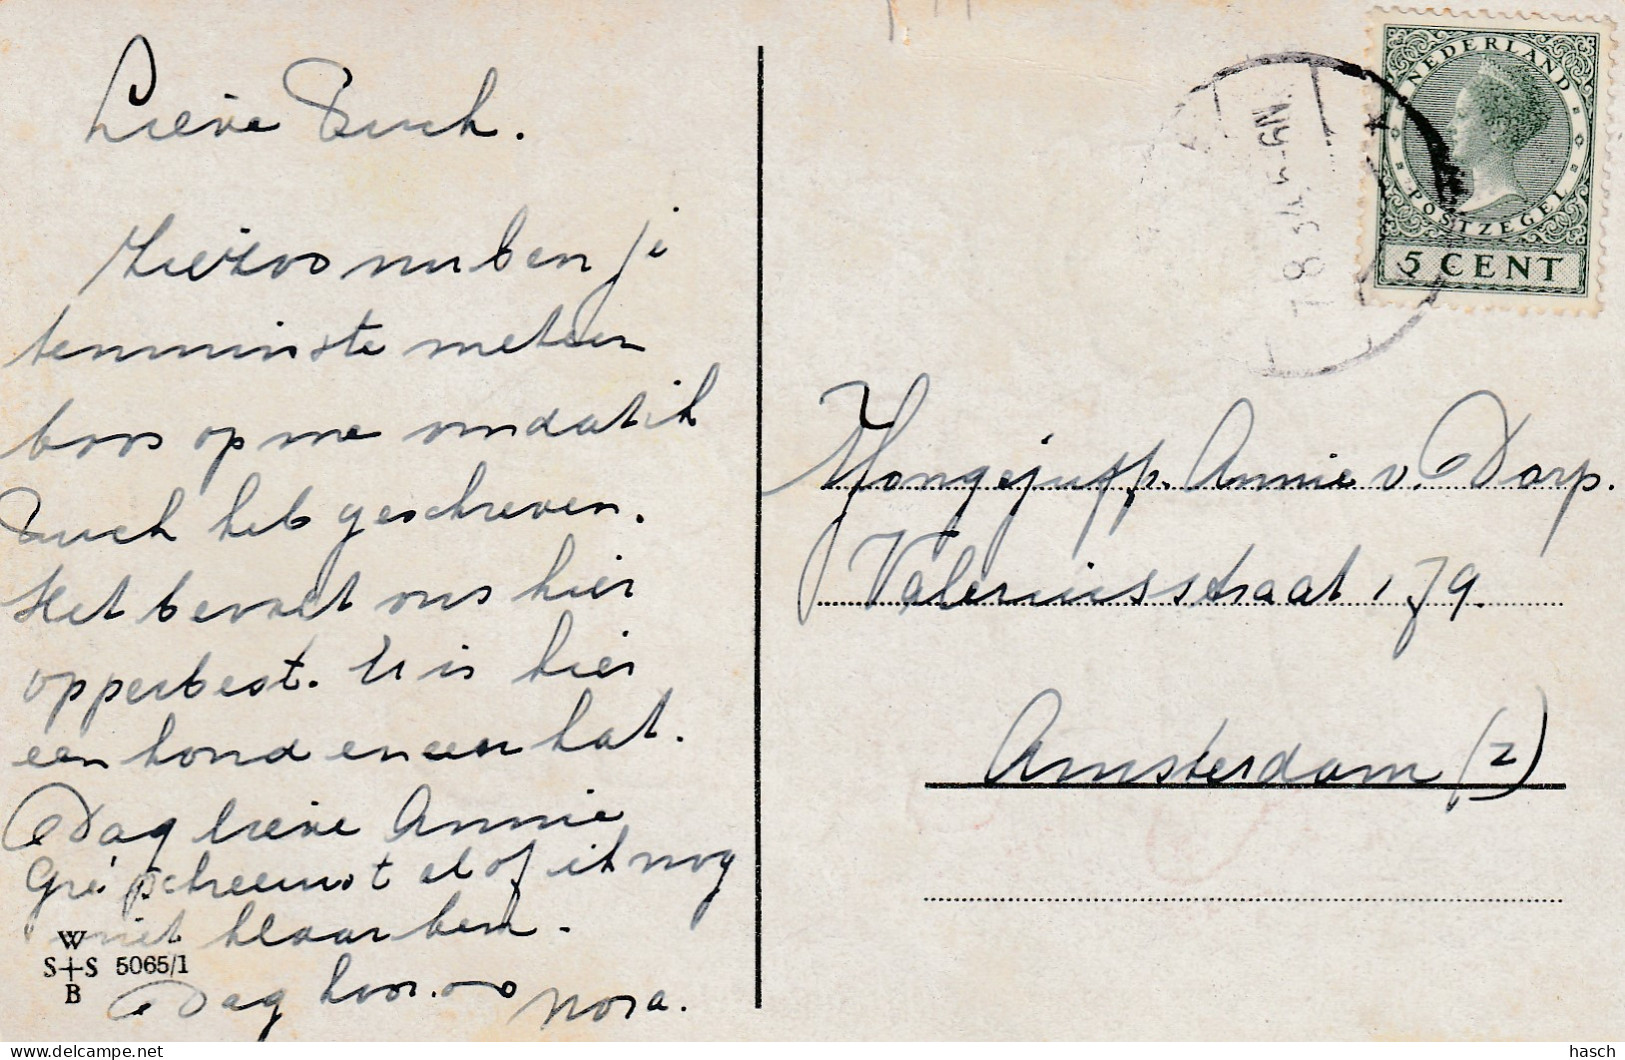 Lieve Buch.
Ziezoo nu ben je
tenminste meteen
boos op me omdat ik
Buch heb geschreven.
Het bevalt ons hier
opperbest. Er is hier
een hond en een kat.
Dag lieve Annie
Gré schreeuwt al of ik nog
niet klaar ben.
Dag hoor. Nora.
W
S+S 5065/1
B
NEDERLAND
POSTZEGEL
5 CENT
Mongejuffr. Annie v. Dorp.
Valeriusstraat 179.
Amsterdam (Z)
hasch
www.delcampe.net